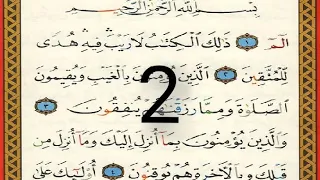 بِسْمِ اللَّهِ الرَّحْمَٰنِ الرَّحِيمِ
الٓمٓ ١ ذَٰلِكَ الْكِتَٰبُ لَا رَيْبَ فِيهِ هُدًى
لِّلْمُتَّقِينَ ٢ الَّذِينَ يُؤْمِنُونَ بِالْغَيْبِ وَيُقِيمُونَ
الصَّلَوٰةَ وَمِمَّا رَزَقْنَٰهُمْ يُنفِقُونَ ٣
وَالَّذِينَ يُؤْمِنُونَ بِمَآ أُنزِلَ إِلَيْكَ وَمَآ أُنزِلَ مِن
قَبْلِكَ وَبِالْآخِرَةِ هُمْ يُوقِنُونَ ٤ أُولَٰٓئِكَ عَلَىٰ
2